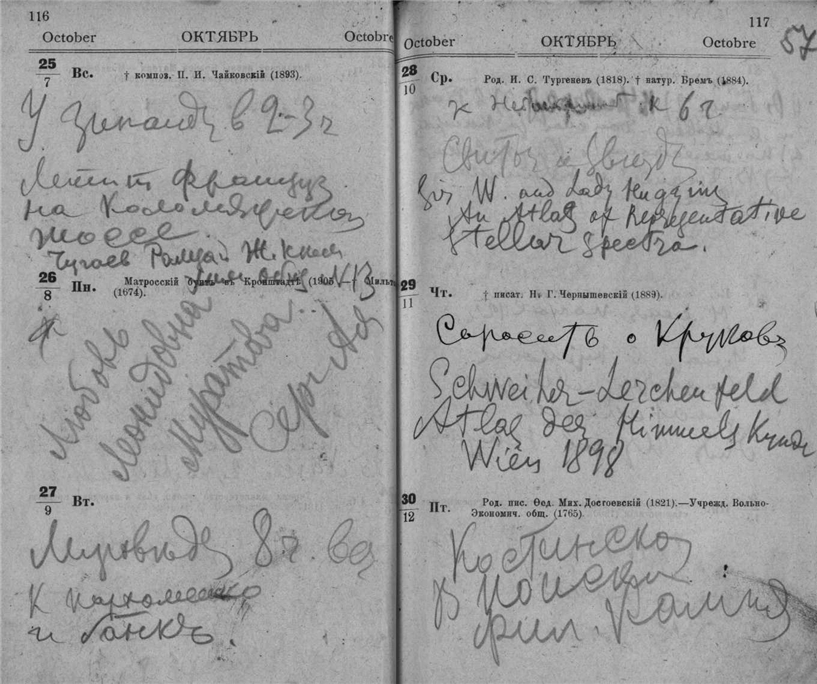 116
October ОКТЯБРЬ Octobre
25
7
Вс. † композ. П. И. Чайковскій (1893).
У в 2-3 ч
Летит француз
на Коломяжское
шоссе.
Чугаев Рамзай Ж.
26
8
Пн. Матросскій бунтъ въ Кронштадтѣ (1905
(1674).
Любовь
Леонидовна
Муратова.
27
9
Вт.
Мировѣд 8 ч.
К Пархоменко
и банкъ.
117
57
October ОКТЯБРЬ Octobre
28
10
Ср. Род. И. С. Тургеневъ (1818). † натур. Бремъ (1884).
к 6 г.
Sir W. and Lady Huggins
An Atlas of Representative
Stellar Spectra.
29
11
Чт. † писат. Н. Г. Чернышевскій (1889).
Спросить о Круковъ
Schweiger-Lerchenfeld
Atlas der Himmelskunde
Wien 1898
30
12
Пт. Род. пис. Ѳед. Мих. Достоевскій (1821).—Учрежд. Вольно-
Экономич. общ. (1765).
Костинской
В поиски